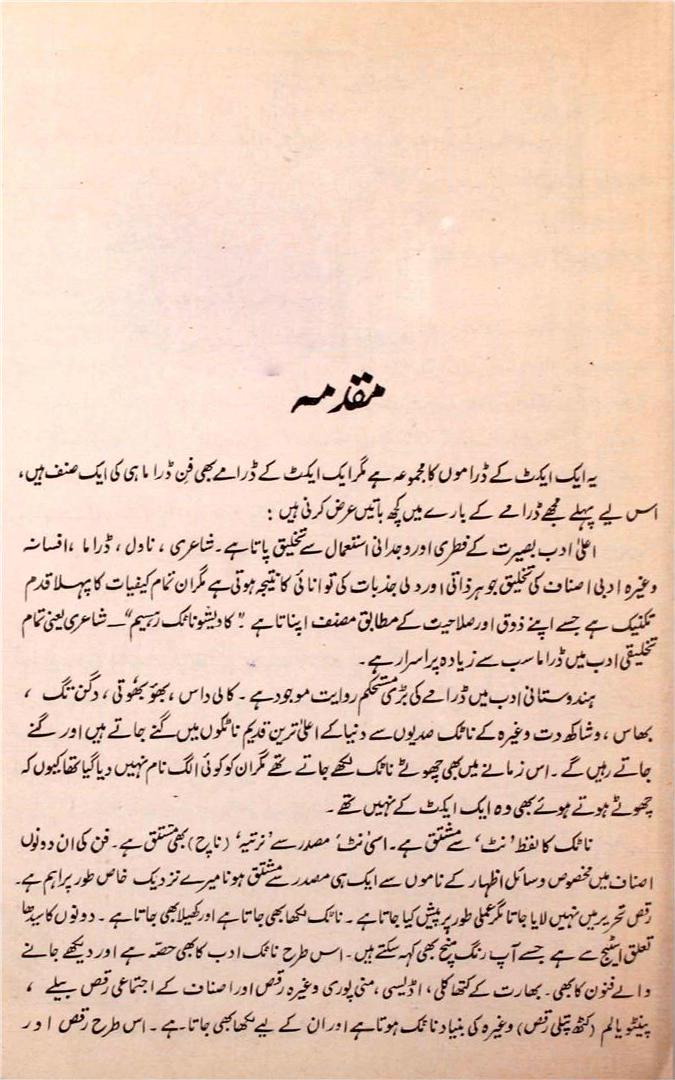 مقدمہ
یہ ایک ایکٹ کے ڈراموں کا مجموعہ ہے مگر ایک ایکٹ کے ڈرامے بھی فن ڈراما ہی کی ایک صنف ہیں،
اس لیے پہلے مجھے ڈرامے کے بارے میں کچھ باتیں عرض کرنی ہیں :
اعلیٰ ادب بصیرت کے فطری اور وجدانی استعمال سے تخلیق پاتا ہے۔ شاعری ، ناول ، ڈراما ، افسانہ
وغیرہ ادبی اصناف کی تخلیق جوہر ذاتی اور دلی جذبات کی توانائی کا نتیجہ ہوتی ہے مگر ان تمام کیفیات کا پہلا قدم
تکنیک ہے جسے اپنے ذوق اور صلاحیت کے مطابق مصنف اپناتا ہے۔ "کادیشو ناٹک رہسیم" ــ شاعری یعنی تمام
تخلیقی ادب میں ڈراما سب سے زیادہ پراسرار ہے۔
ہندوستانی ادب میں ڈرامے کی بڑی مستحکم روایت موجود ہے۔ کالی داس ، بھوَ بھوُتی ، دگن تگ ،
بھاس ، وشاکھ دت وغیرہ کے ناٹک صدیوں سے دنیا کے اعلیٰ ترین قدیم ناٹکوں میں گنے جاتے ہیں اور گنے
جاتے رہیں گے۔ اس زمانے میں بھی چھوٹے ناٹک لکھے جاتے تھے مگر ان کو کوئی الگ نام نہیں دیا گیا تھا کیوں کہ
چھوٹے ہوتے ہوئے بھی وہ ایک ایکٹ کے نہیں تھے۔
ناٹک کا لفظ 'نٹ' سے مشتق ہے۔ اسی 'نٹ' مصدر سے 'نرتیہ' (ناچ) بھی مشتق ہے۔ فن کی ان دونوں
اصناف میں مخصوص وسائل اظہار کے ناموں سے ایک ہی مصدر سے مشتق ہونا میرے نزدیک خاص طور پر اہم ہے۔
رقص تحریر میں نہیں لایا جاتا مگر عملی طور پر پیش کیا جاتا ہے۔ ناٹک لکھا بھی جاتا ہے اور کھیلا بھی جاتا ہے۔ دونوں کا سیدھا
تعلق اسٹیج سے ہے جسے آپ رنگ منچ بھی کہہ سکتے ہیں۔ اس طرح ناٹک ادب کا بھی حصہ ہے اور دیکھے جانے
والے فنون کا بھی۔ بھارت کے کتھا کلی ، اڈیسی ، منی پوری وغیرہ رقص اور اصناف کے اجتماعی رقص بیلے ،
پینٹو یالم (کٹھ پتلی رقص) وغیرہ کی بنیاد ناٹک ہوتا ہے اور ان کے لیے لکھا بھی جاتا ہے۔ اس طرح رقص اور